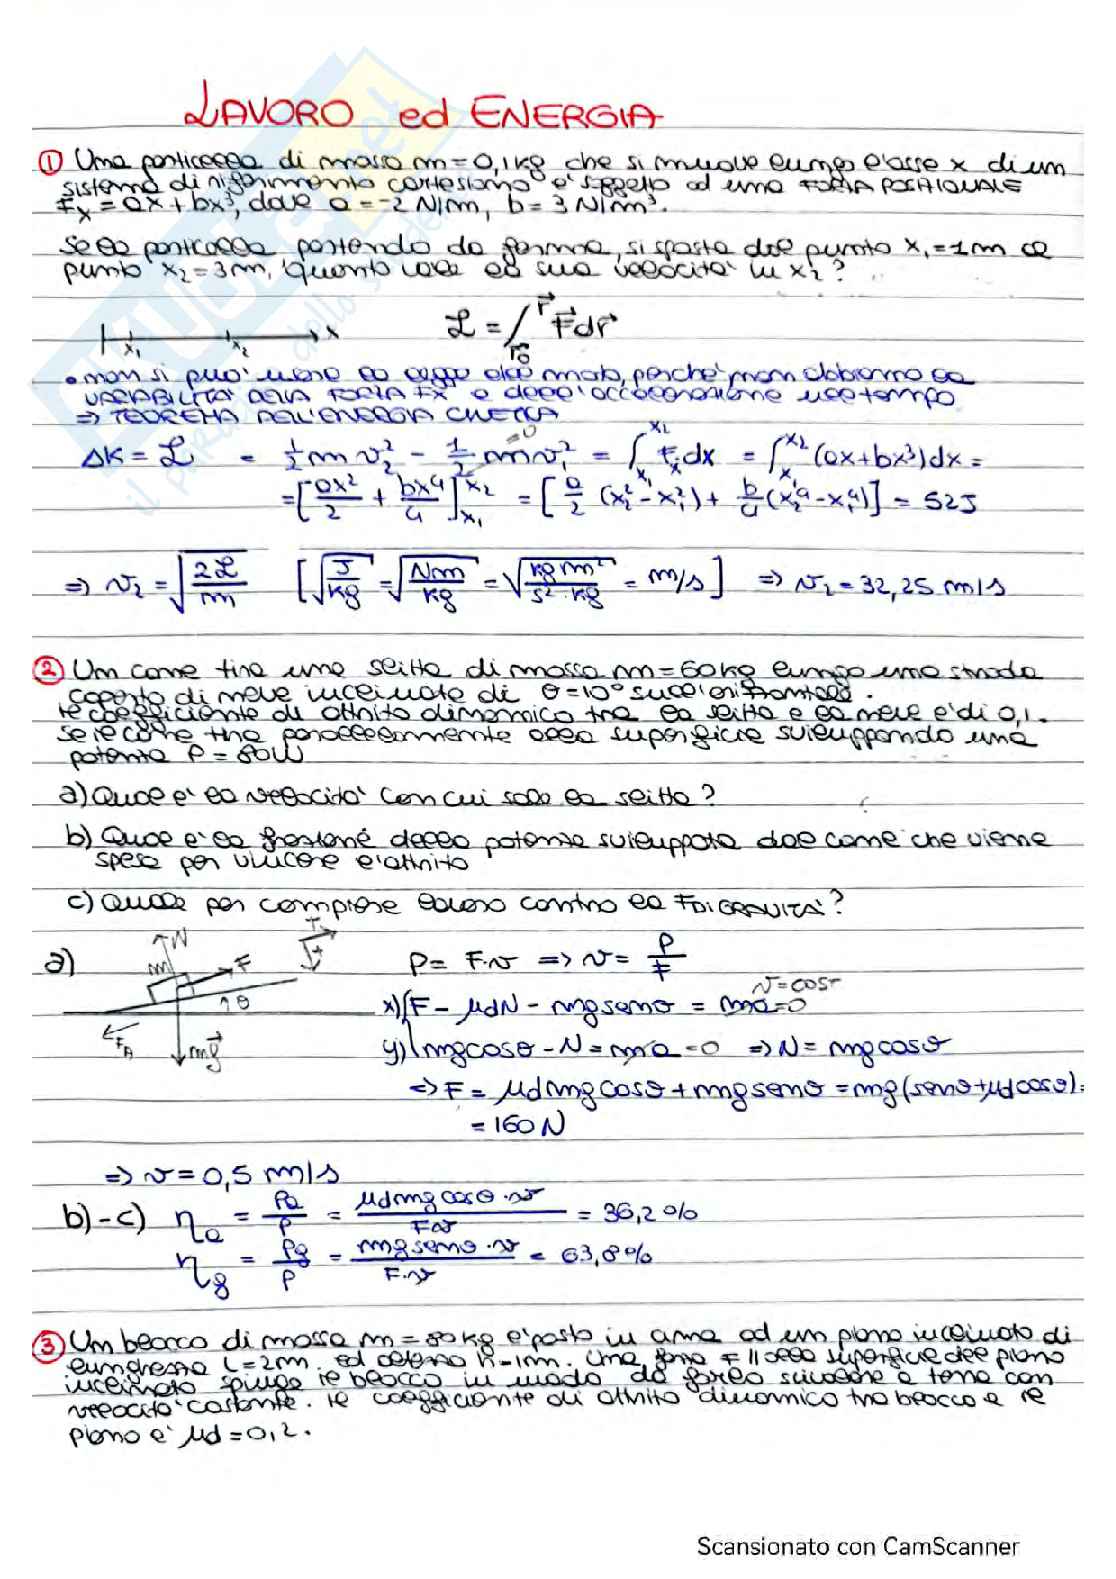 LAVORO ed ENERGIA
① Una particella di massa m = 0,1 kg che si muove lungo l'asse x di un
sistema di riferimento cartesiano è soggetto ad una FORZA POSIZIONALE
Fx = ax + bx³, dove a = -2 N/m, b = 3 N/m³.
Se la particella partendo da ferma, si sposta dal punto x₁ = 1m al
punto x₂ = 3m, quanto vale la sua velocità in x₂?
x₁ x₂ x
L = ∫ r⃗ r⃗₀ F⃗ dr⃗
• non si può usare la legge del moto, perché non abbiamo la
VARIABILITÀ DELLA FORZA Fx e dell'accelerazione nel tempo
⇒ TEOREMA DELL'ENERGIA CINETICA
ΔK = L = ½ m v₂² - ½ m v₁² =0 = ∫ x₁ x₂ Fx dx = ∫ x₁ x₂ (ax + bx³) dx =
= [ax²/2 + bx⁴/4] x₁ x₂ = [a/2 (x₂² - x₁²) + b/4 (x₂⁴ - x₁⁴)] = 52J
⇒ v₂ = √(2L/m) [√(J/kg) = √(Nm/kg) = √(kg m²/s² · kg) = m/s] ⇒ v₂ = 32,25 m/s
② Un cane tira una slitta di massa m = 60 kg lungo una strada
coperta di neve inclinata di θ = 10° sull'orizzontale.
Il coefficiente di attrito dinamico tra la slitta e la neve è di 0,1.
Se il cane tira parallelamente alla superficie sviluppando una
potenza P = 80W
a) Qual è la velocità con cui sale la slitta?
b) Qual è la frazione della potenza sviluppata dal cane che viene
spesa per vincere l'attrito
c) Quale per compiere lavoro contro la F DI GRAVITÀ?
a) N m F θ F_A mg⃗
P = F·v ⇒ v = P/F
v = cost
x) { F - μdN - mg senθ = ma = 0
y) { mg cosθ - N = ma = 0 ⇒ N = mg cosθ
⇒ F = μd mg cosθ + mg senθ = mg (senθ + μd cosθ) =
= 160 N
⇒ v = 0,5 m/s
b)-c) ηa = Pa/P = μd mg cosθ · v / F·v = 36,2%
ηg = Pg/P = mg senθ · v / F·v = 63,8%
③ Un blocco di massa m = 80 kg è posto in cima ad un piano inclinato di
lunghezza l = 2m ed altezza h = 1m. Una forza F // alla superficie del piano
inclinato spinge il blocco in modo da farlo scivolare a terra con
velocità costante. Il coefficiente di attrito dinamico tra blocco e il
piano è μd = 0,2.
Scansionato con CamScanner